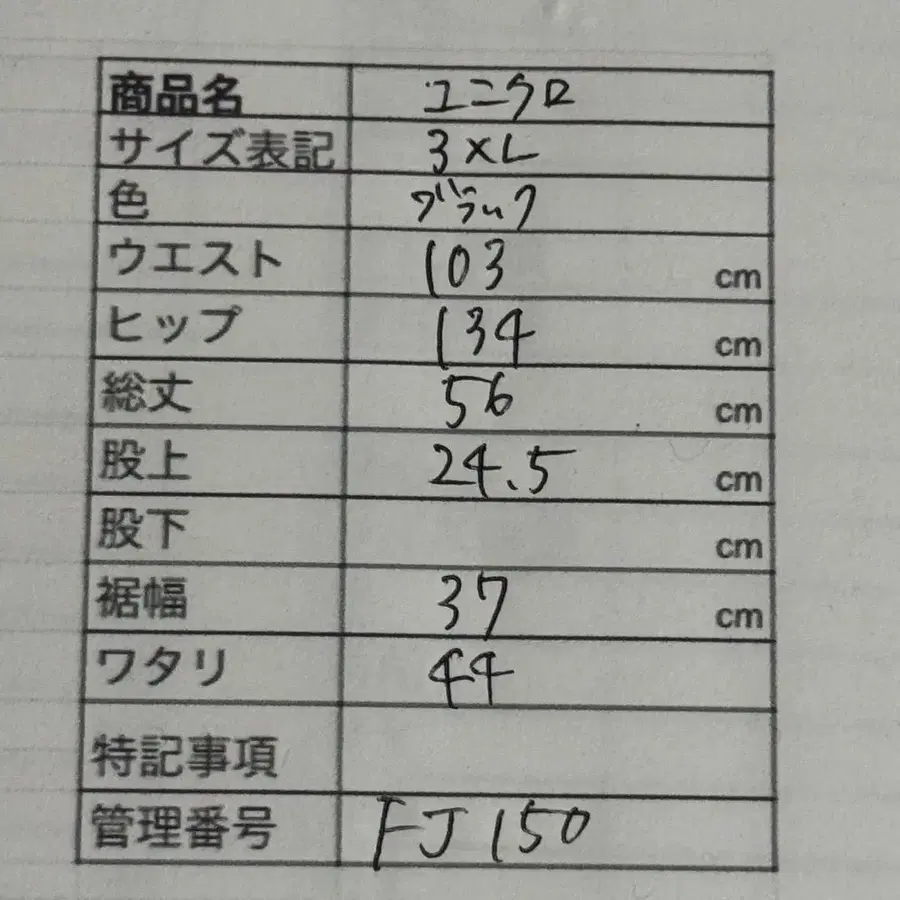 商品名 ユニクロ
サイズ表記 3XL
色 ブラック
ウエスト 103 cm
ヒップ 134 cm
総丈 56 cm
股上 24.5 cm
股下 cm
裾幅 37 cm
ワタリ 44
特記事項
管理番号 FJ150